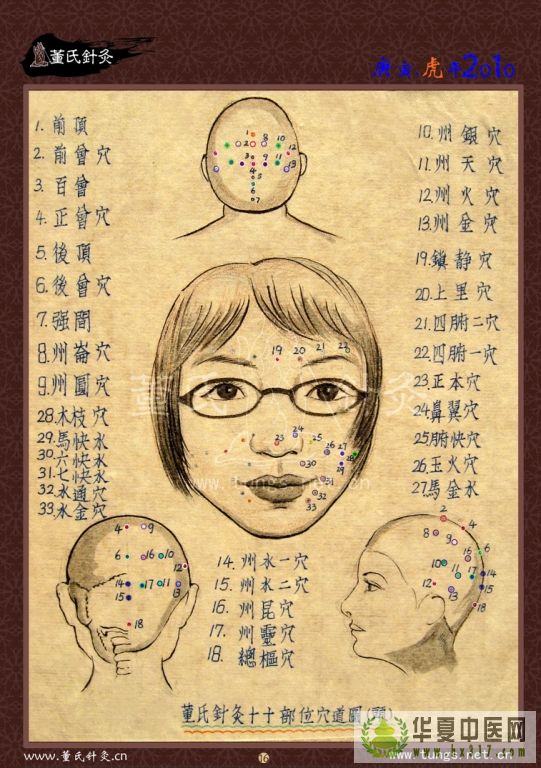 董氏針灸
庚寅.虎年2010
1. 前頂
2. 前會穴
3. 百會
4. 正會穴
5. 後頂
6. 後會穴
7. 强間
8. 州崙穴
9. 州圓穴
28. 木枝穴
29. 馬快水
30. 六快水
31. 七快水
32. 水通穴
33. 水金穴
10. 州錕穴
11. 州天穴
12. 州火穴
13. 州金穴
19. 鎮静穴
20. 上里穴
21. 四腑二穴
22. 四腑一穴
23. 正本穴
24. 鼻翼穴
25. 腑快穴
26. 玉火穴
27. 馬金水
董氏针灸
www.tungs.net.cn
14. 州水一穴
15. 州水二穴
16. 州昆穴
17. 州靈穴
18. 總樞穴
董氏針灸十十部位穴道圖(頭)
www.董氏针灸.cn
16
www.tungs.net.cn
华夏中医网